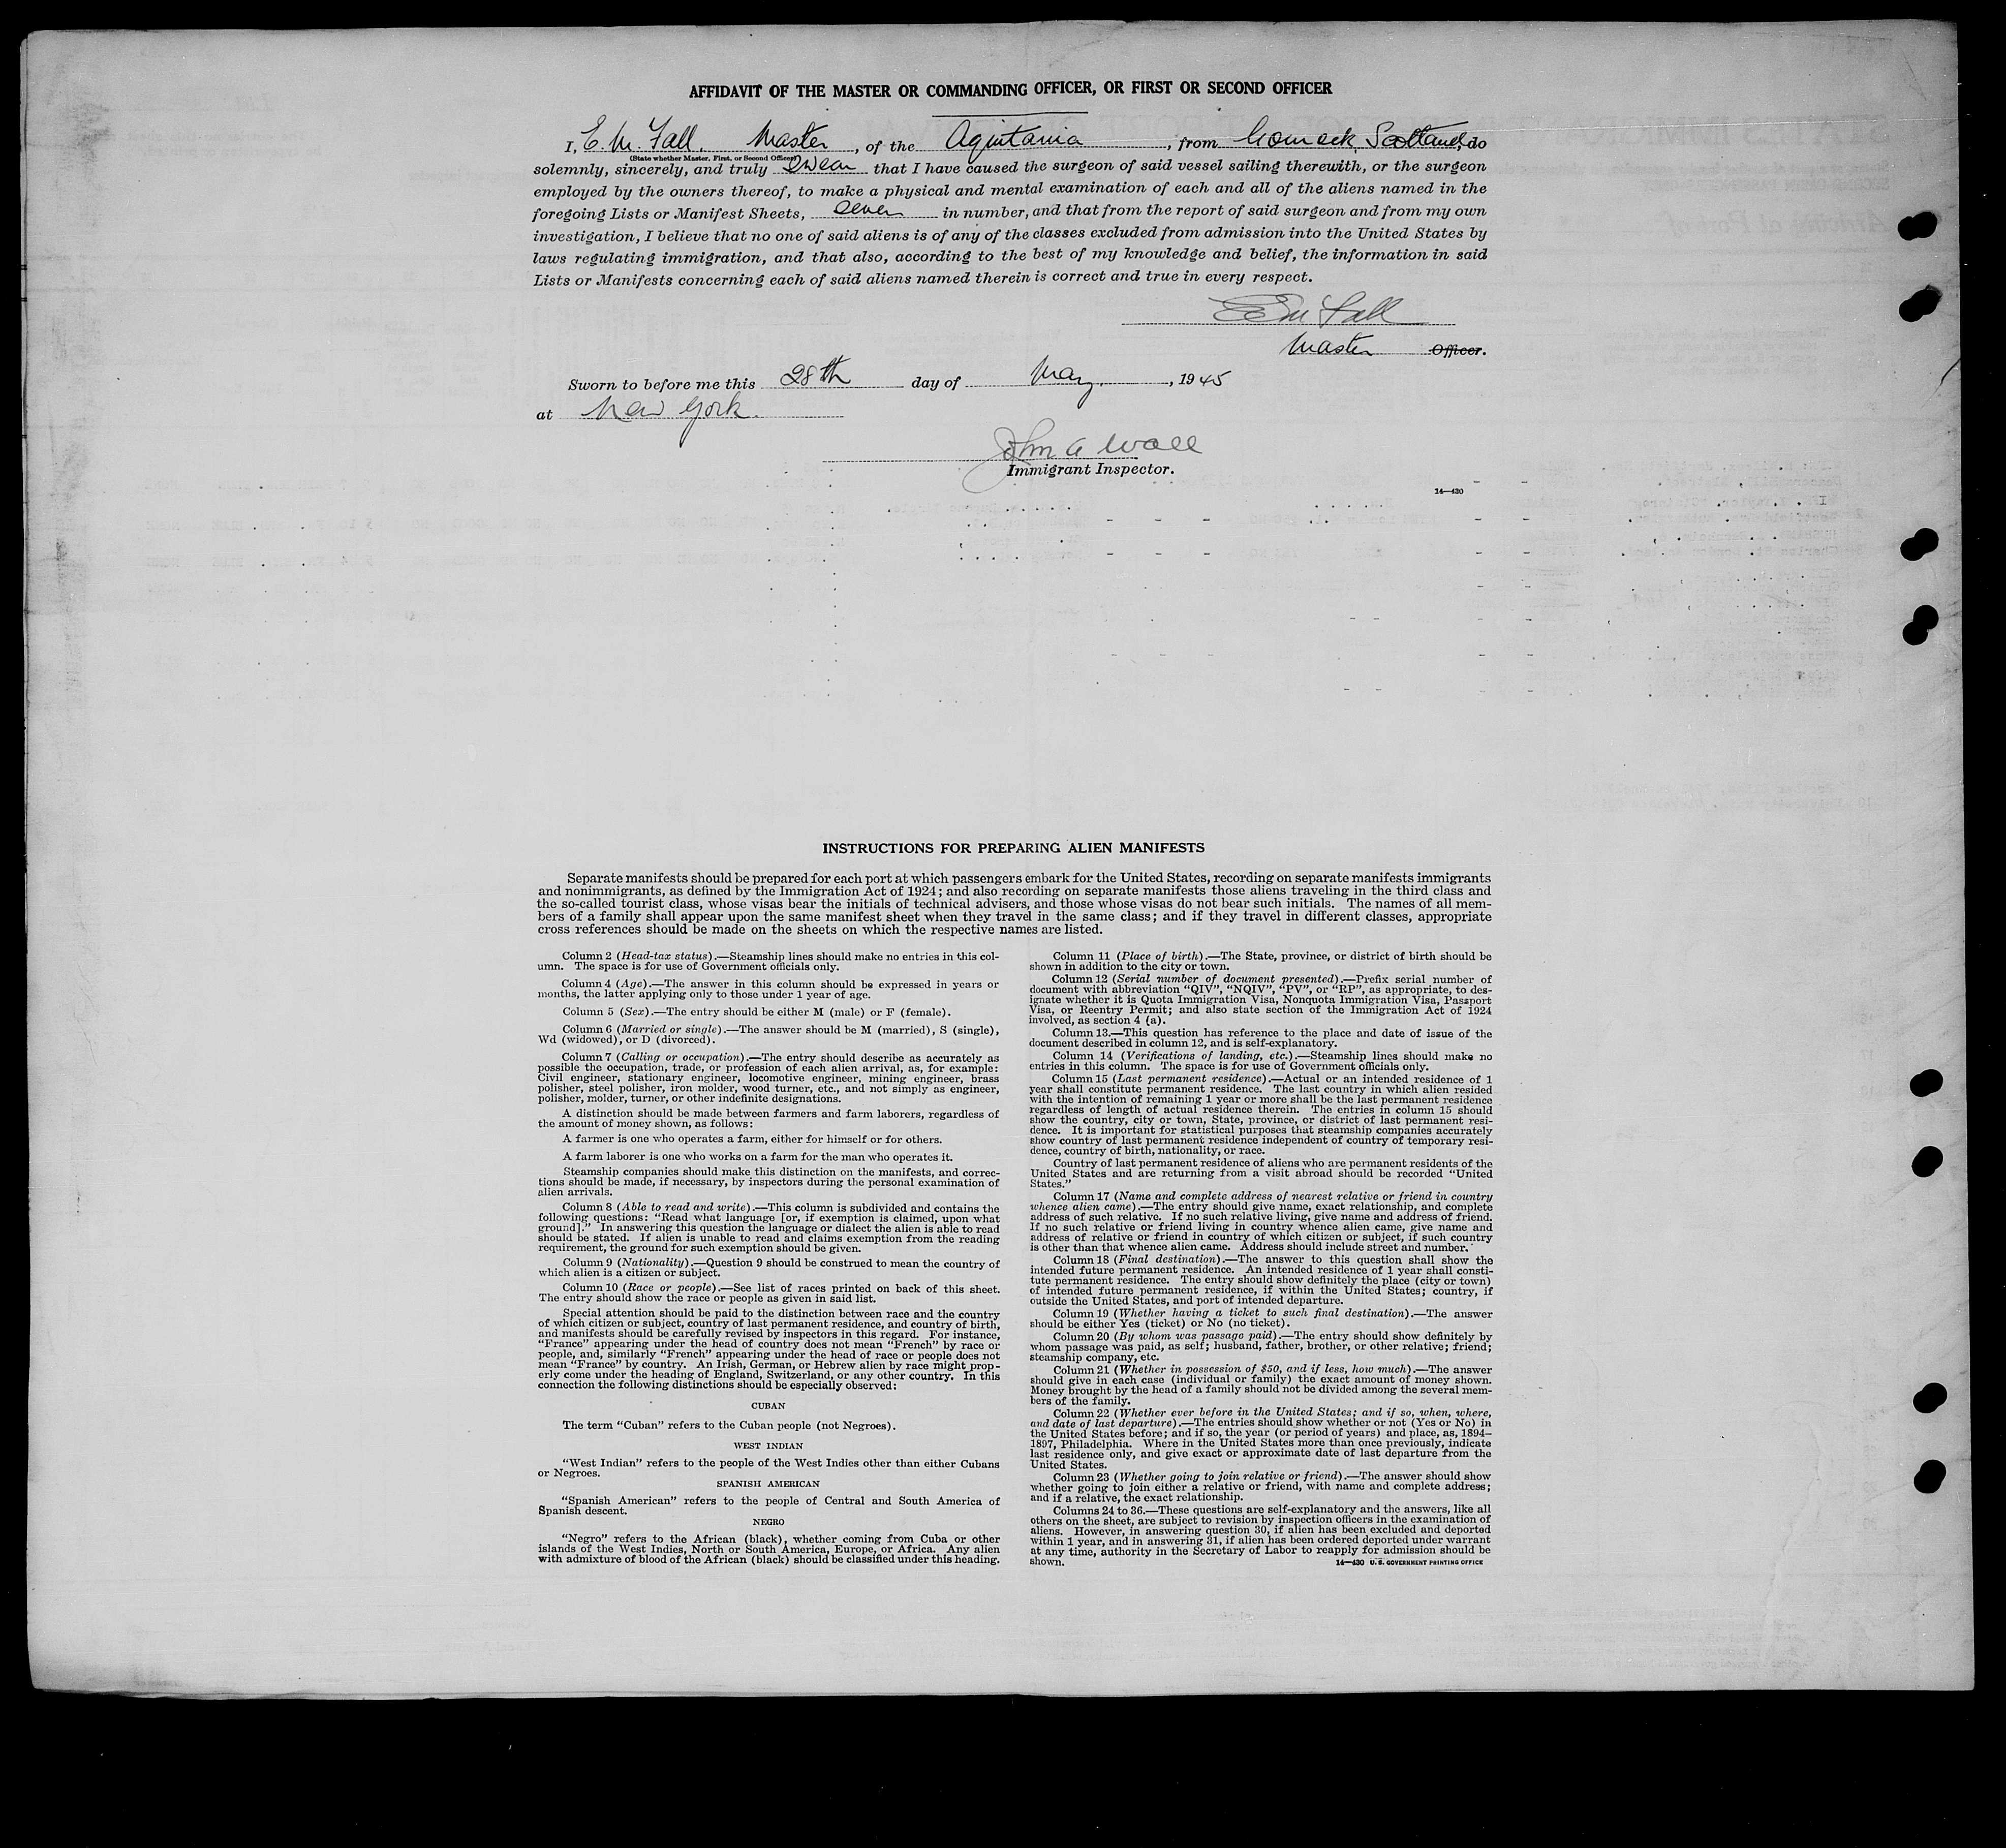 AFFIDAVIT OF THE MASTER OR COMMANDING OFFICER, OR FIRST OR SECOND OFFICER
I, E. M. Fall. Master, of the Aquitania, from Gourock, Scotland, do
(State whether Master, First, or Second Officer)
solemnly, sincerely, and truly swear that I have caused the surgeon of said vessel sailing therewith, or the surgeon
employed by the owners thereof, to make a physical and mental examination of each and all of the aliens named in the
foregoing Lists or Manifest Sheets, in number, and that from the report of said surgeon and from my own
investigation, I believe that no one of said aliens is of any of the classes excluded from admission into the United States by
laws regulating immigration, and that also, according to the best of my knowledge and belief, the information in said
Lists or Manifests concerning each of said aliens named therein is correct and true in every respect.
E M Fall
Master Officer.
Sworn to before me this 28th day of May, 1945
at New York.
John A Wall
Immigrant Inspector.
14—430
INSTRUCTIONS FOR PREPARING ALIEN MANIFESTS
Separate manifests should be prepared for each port at which passengers embark for the United States, recording on separate manifests immigrants
and nonimmigrants, as defined by the Immigration Act of 1924; and also recording on separate manifests those aliens traveling in the third class and
the so-called tourist class, whose visas bear the initials of technical advisers, and those whose visas do not bear such initials. The names of all mem-
bers of a family shall appear upon the same manifest sheet when they travel in the same class; and if they travel in different classes, appropriate
cross references should be made on the sheets on which the respective names are listed.
Column 2 (Head-tax status).—Steamship lines should make no entries in this col-
umn. The space is for use of Government officials only.
Column 4 (Age).—The answer in this column should be expressed in years or
months, the latter applying only to those under 1 year of age.
Column 5 (Sex).—The entry should be either M (male) or F (female).
Column 6 (Married or single).—The answer should be M (married), S (single),
Wd (widowed), or D (divorced).
Column 7 (Calling or occupation).—The entry should describe as accurately as
possible the occupation, trade, or profession of each alien arrival, as, for example:
Civil engineer, stationary engineer, locomotive engineer, mining engineer, brass
polisher, steel polisher, iron molder, wood turner, etc., and not simply as engineer,
polisher, molder, turner, or other indefinite designations.
A distinction should be made between farmers and farm laborers, regardless of
the amount of money shown, as follows:
A farmer is one who operates a farm, either for himself or for others.
A farm laborer is one who works on a farm for the man who operates it.
Steamship companies should make this distinction on the manifests, and correc-
tions should be made, if necessary, by inspectors during the personal examination of
alien arrivals.
Column 8 (Able to read and write).—This column is subdivided and contains the
following questions: “Read what language [or, if exemption is claimed, upon what
ground].” In answering this question the language or dialect the alien is able to read
should be stated. If alien is unable to read and claims exemption from the reading
requirement, the ground for such exemption should be given.
Column 9 (Nationality).—Question 9 should be construed to mean the country of
which alien is a citizen or subject.
Column 10 (Race or people).—See list of races printed on back of this sheet.
The entry should show the race or people as given in said list.
Special attention should be paid to the distinction between race and the country
of which citizen or subject, country of last permanent residence, and country of birth,
and manifests should be carefully revised by inspectors in this regard. For instance,
“France” appearing under the head of country does not mean “French” by race or
people, and, similarly “French” appearing under the head of race or people does not
mean “France” by country. An Irish, German, or Hebrew alien by race might prop-
erly come under the heading of England, Switzerland, or any other country. In this
connection the following distinctions should be especially observed:
CUBAN
The term “Cuban” refers to the Cuban people (not Negroes).
WEST INDIAN
“West Indian” refers to the people of the West Indies other than either Cubans
or Negroes.
SPANISH AMERICAN
“Spanish American” refers to the people of Central and South America of
Spanish descent.
NEGRO
“Negro” refers to the African (black), whether coming from Cuba or other
islands of the West Indies, North or South America, Europe, or Africa. Any alien
with admixture of blood of the African (black) should be classified under this heading.
Column 11 (Place of birth).—The State, province, or district of birth should be
shown in addition to the city or town.
Column 12 (Serial number of document presented).—Prefix serial number of
document with abbreviation “QIV”, “NQIV”, “PV”, or “RP”, as appropriate, to des-
ignate whether it is Quota Immigration Visa, Nonquota Immigration Visa, Passport
Visa, or Reentry Permit; and also state section of the Immigration Act of 1924
involved, as section 4 (a).
Column 13.—This question has reference to the place and date of issue of the
document described in column 12, and is self-explanatory.
Column 14 (Verifications of landing, etc.).—Steamship lines should make no
entries in this column. The space is for use of Government officials only.
Column 15 (Last permanent residence).—Actual or an intended residence of 1
year shall constitute permanent residence. The last country in which alien resided
with the intention of remaining 1 year or more shall be the last permanent residence
regardless of length of actual residence therein. The entries in column 15 should
show the country, city or town, State, province, or district of last permanent resi-
dence. It is important for statistical purposes that steamship companies accurately
show country of last permanent residence independent of country of temporary resi-
dence, country of birth, nationality, or race.
Country of last permanent residence of aliens who are permanent residents of the
United States and are returning from a visit abroad should be recorded “United
States.”
Column 17 (Name and complete address of nearest relative or friend in country
whence alien came).—The entry should give name, exact relationship, and complete
address of such relative. If no such relative living, give name and address of friend.
If no such relative or friend living in country whence alien came, give name and
address of relative or friend in country of which citizen or subject, if such country
is other than that whence alien came. Address should include street and number.
Column 18 (Final destination).—The answer to this question shall show the
intended future permanent residence. An intended residence of 1 year shall consti-
tute permanent residence. The entry should show definitely the place (city or town)
of intended future permanent residence, if within the United States; country, if
outside the United States, and port of intended departure.
Column 19 (Whether having a ticket to such final destination).—The answer
should be either Yes (ticket) or No (no ticket).
Column 20 (By whom was passage paid).—The entry should show definitely by
whom passage was paid, as self; husband, father, brother, or other relative; friend;
steamship company, etc.
Column 21 (Whether in possession of $50, and if less, how much).—The answer
should give in each case (individual or family) the exact amount of money shown.
Money brought by the head of a family should not be divided among the several mem-
bers of the family.
Column 22 (Whether ever before in the United States; and if so, when, where,
and date of last departure).—The entries should show whether or not (Yes or No) in
the United States before; and if so, the year (or period of years) and place, as, 1894–
1897, Philadelphia. Where in the United States more than once previously, indicate
last residence only, and give exact or approximate date of last departure from the
United States.
Column 23 (Whether going to join relative or friend).—The answer should show
whether going to join either a relative or friend, with name and complete address;
and if a relative, the exact relationship.
Columns 24 to 36.—These questions are self-explanatory and the answers, like all
others on the sheet, are subject to revision by inspection officers in the examination of
aliens. However, in answering question 30, if alien has been excluded and deported
within 1 year, and in answering 31, if alien has been ordered deported under warrant
at any time, authority in the Secretary of Labor to reapply for admission should be
shown.
14—430 U. S. GOVERNMENT PRINTING OFFICE